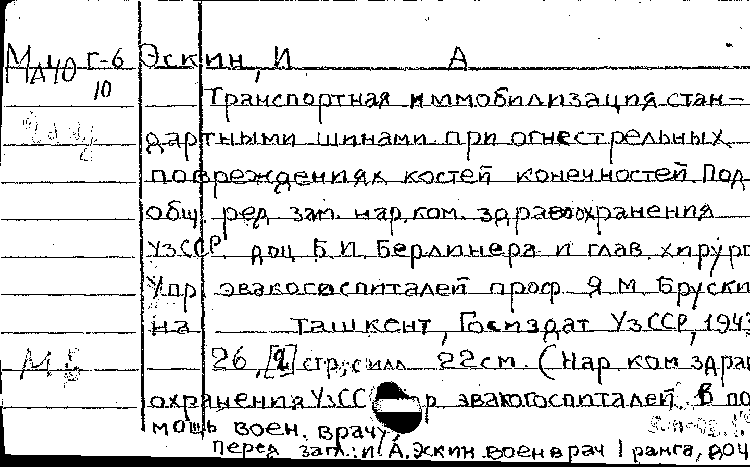 МАЧО Г-6 Эскин, И А
10
Транспортная иммобилизация стан-
дартными шинами при огнестрельных
повреждениях костей конечностей. Под
общ. ред. зам. нар. ком. здравоохранения
УзССР доц. Б. И. Берлинера и глав. хирург
Упр. эвакогоспиталей проф. Я. М. Бруски
на Ташкент, Госиздат УзССР, 1943
26, [2] стр; силл 22 см. (Нар ком здрав
охранения УзСС р эвакогоспиталей. В по
МБ
мощь воен. врачу
Перед загл: И. А. Эскин военврач 1 ранга, доц